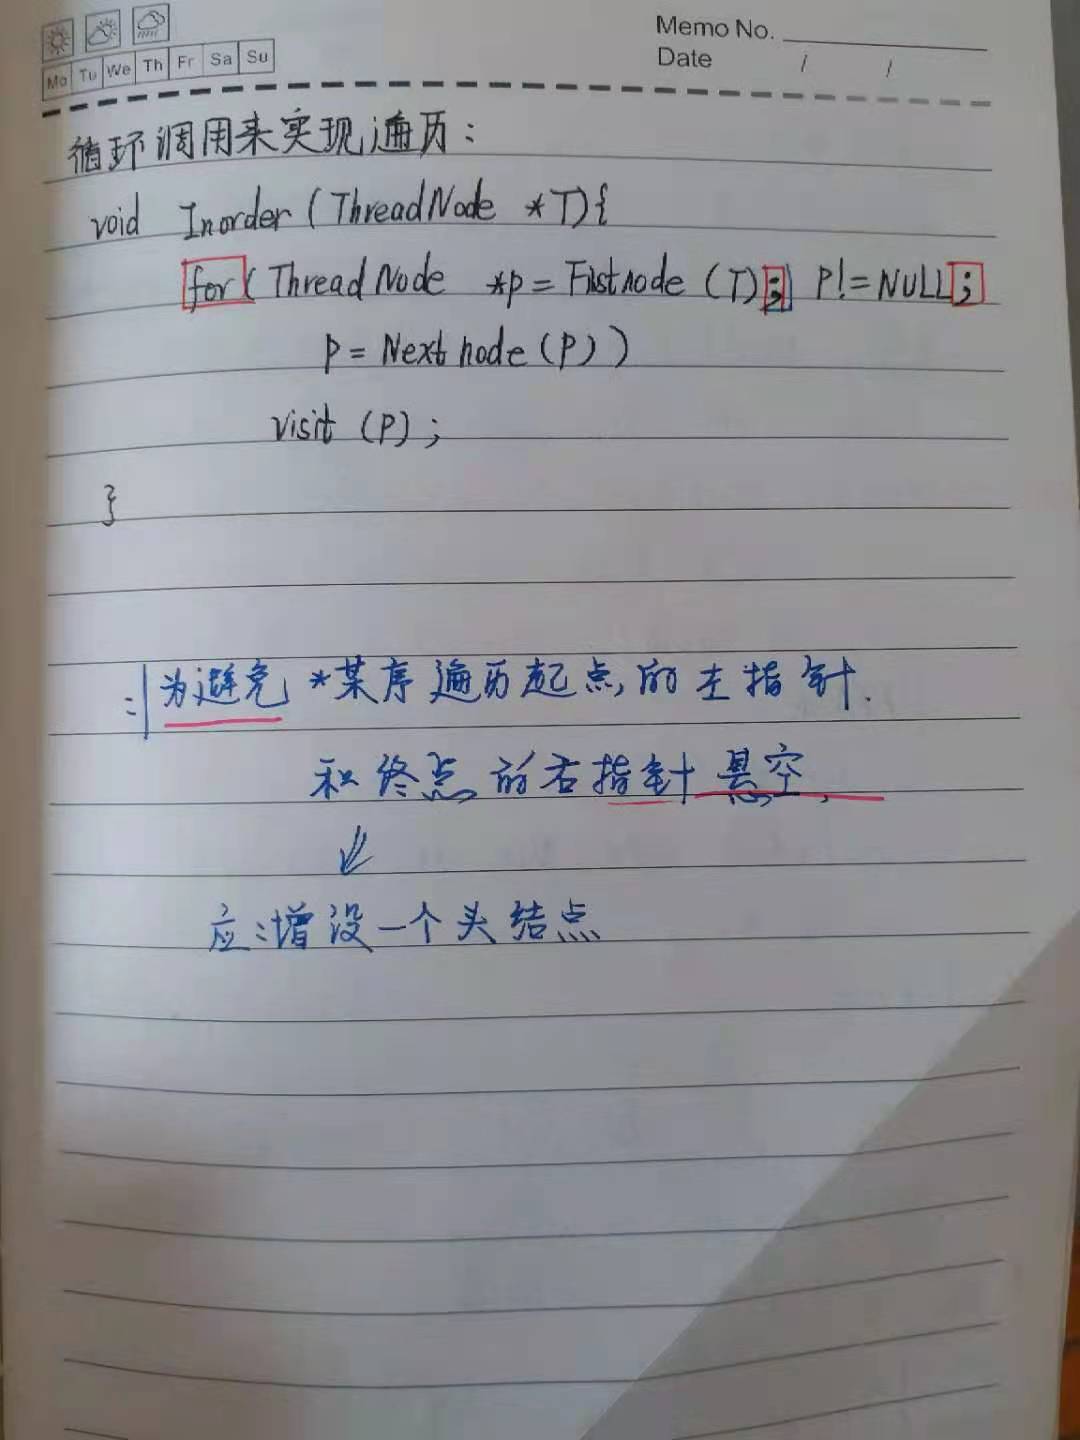 Memo No.
Mo Tu We Th Fr Sa Su
Date / /
循环调用来实现遍历:
void Inorder (ThreadNode *T){
for( ThreadNode *p = Fistnode (T); P!= NULL;
p = Next node (p) )
visit (p);
}
为避免 *某序遍历起点的左指针.
和终点的右指针悬空,
应:增设一个头结点